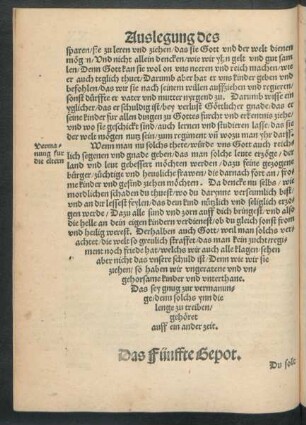 Auslegung des
sparen/sie zu leren vnd ziehen/das sie Gott vnd der welt dienen
mög n/ Vnd nicht allein dencken/wie wir yhn gelt vnd gut sam
len/Denn Gott kan sie wol on vns neeren vnd reich machen/wie
er auch teglich thuet/Darumb aber hat er vns kinder geben vnd
befohlen/das wir sie nach seinem willen auffziehen vnd regieren/
sonst dürffte er vater vnd mutter nyrgend zu. Darumb wisse ein
yglicher/das er schuldig ist/bey verlust Götlicher gnade/das er
seine kinder fur allen dingen zu Gottes furcht vnd erkentnis ziehe/
vnd wo sie geschickt sind/auch lernen vnd studieren lasse/das sie
der welt mögen nutz sein/zum regiment vñ wozu man yhr darff.
Verma-
nung fur
die eltern
Wenn man nu solchs thete/würde vns Gott auch reich
lich segenen vnd gnade geben/das man solche leute erzöge/der
land vnd leut gebessert möchten werden/dazu feine gezogene
bürger/züchtige vnd heusliche frawen/die darnach fort an/fro
me kinder vnd gesind ziehen möchten. Da dencke nu selbs/wie
mordlichen schaden du thuest wo du darynne versaumlich bist/
vnd an dir lessest feylen/das dein kind nützlich vnd seliglich erzo
gen werde/Dazu alle sund vnd zorn auff dich bringest/vnd also
die helle an dein eigen kindern verdienest/ob du gleich sonst from
vnd heilig werest. Derhalben auch Gott/weil man solchs ver
achtet/die welt so grewlich straffet/das man kein zucht/regi
ment noch friede hat/welchs wir auch alle klagen/sehen
aber nicht das vnsere schuld ist/Denn wie wir sie
ziehen/so haben wir vngeratene vnd vn-
gehorsame kinder vnd vnterthane.
Das sey gnug zur vermanun-
ge/denn solchs ynn die
lenge zu treiben/
gehöret
auff ein ander zeit.
Das Fünffte Gepot.
Du solt